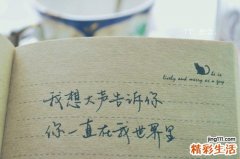 he is
lively and merry as a grig
我想大声告诉你
你一直在我世界里
jing111.com
精彩生活